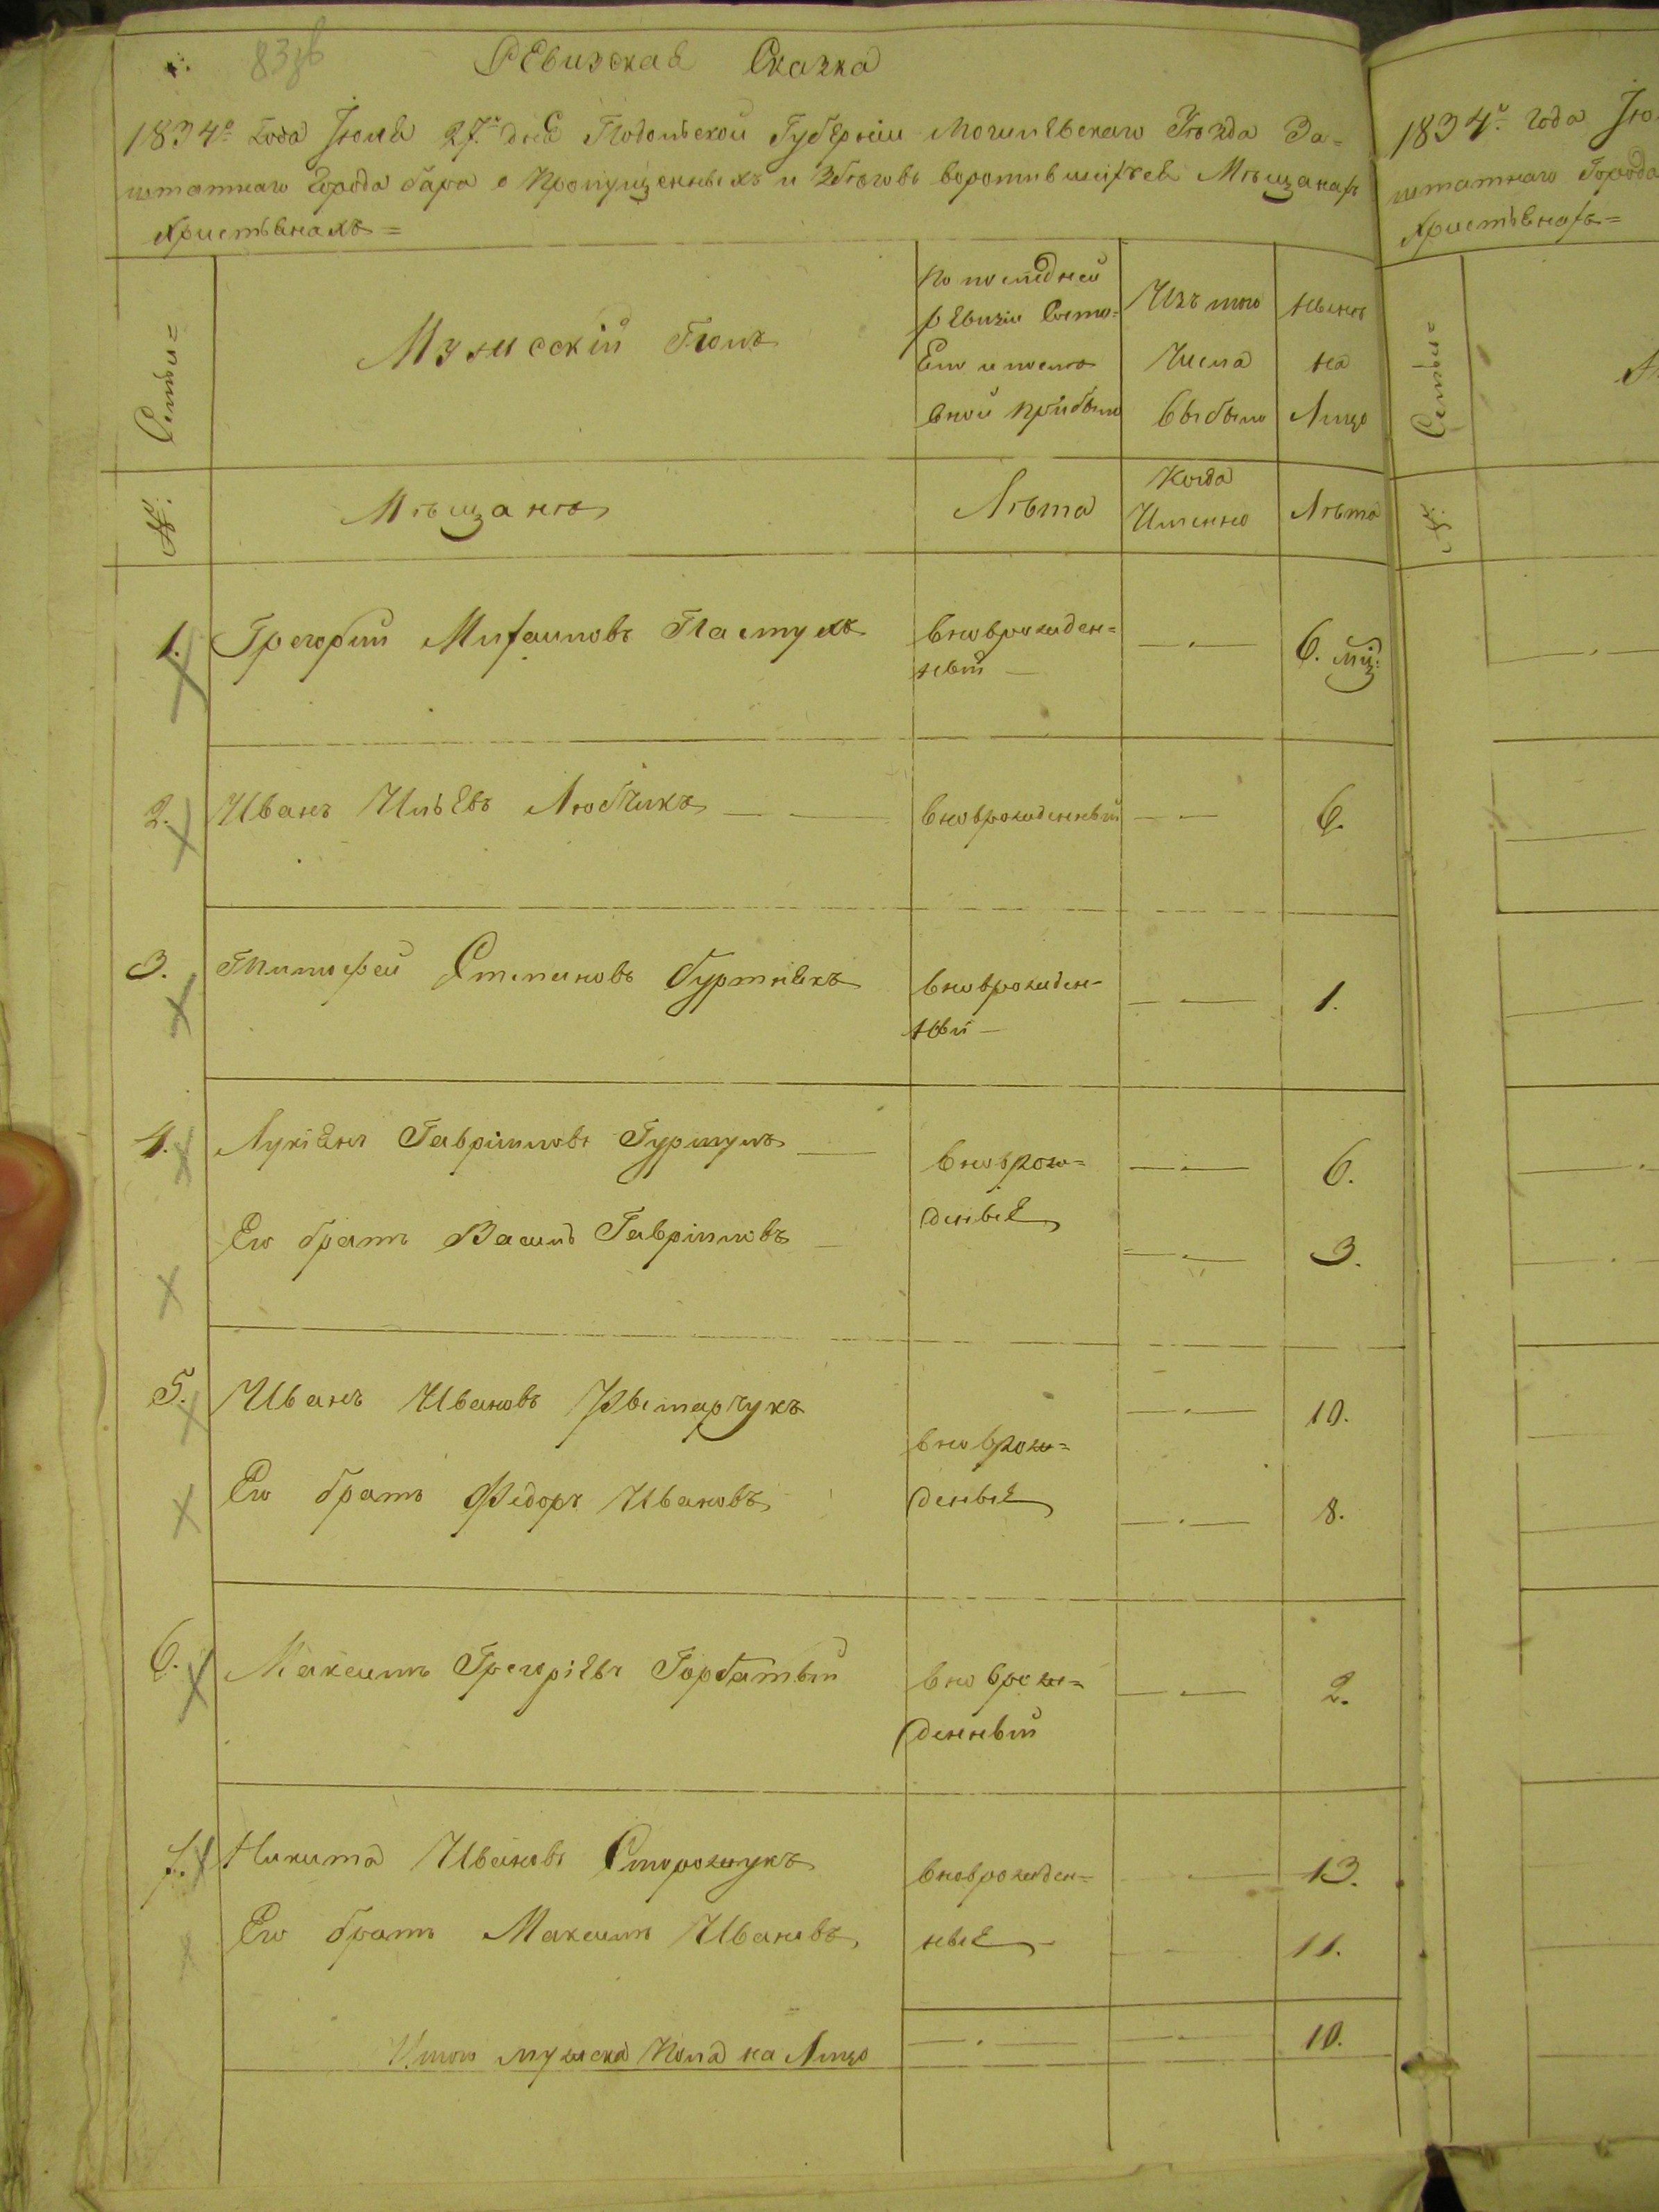 83 зв
Ревизская Сказка
1834го года Июля 27го дня Подольской Губернии Могилевскаго Уезда За=
штатнаго Города бара о пропущенныхъ и збѣговъ воротившихся Мѣщанахъ
христѣянахъ=
Семьи=
Мужесскій Полъ
По последней
ревизіи Состо=
Ело и после
оной прибыло
Изъ того
Числа
выбыло
ныне
на
Лицо
№:
Мѣщане
Лѣта
Когда
Именно
Лѣта
1. Грегорий Михаиловъ Пастухъ вновърожден=
ный 6. мц:
2. Иванъ Ильевъ Любчикъ вновърожденный 6.
3. Тимофей Степановъ буртнякъ вновърожден=
ный 1.
4. Лукіянъ Гавріиловъ Гуртулъ вноврож= 6.
Его братъ Василь Гавріиловъ деные 3.
5. Иванъ Ивановъ Рытарчукъ вноврож= 10.
Его братъ Федоръ Ивановъ деные 8.
6. Максимъ Грегоріевъ Горбатый вноврож= 2.
денный
7. Никита Ивановъ Сторожукъ вноврожден= 13.
Его братъ Максимъ Ивановъ ные 11.
Итого мужеска Пола на Лицо 10.
1834го года Ию
штатнаго Города
христьянахъ=
Семьи=
№: